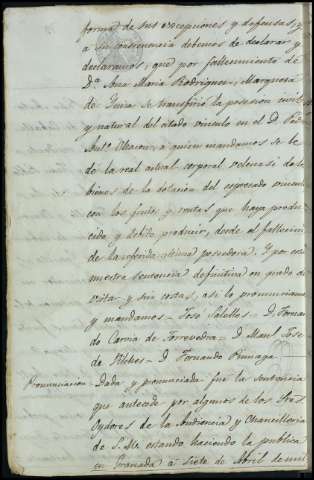 forma de sus excepciones y defensas, y
a su consecuencia debemos de declarar y
declaramos, que por fallecimiento de
D.ª Ana Maria Rodriguez, Marquesa
de se transfirió la posesion civil
y natural del citado vinculo en el D. Ped.
Ant.º a quien mandamos se le
dé la real actual corporal velcuasi de los
bienes de la dotacion del espresado vinculo
con los frutos y rentas que haya produ-
cido y debido producir, desde el fallecim.
de la referida ultima poseedora. Y por esta
nuestra sentencia definitiva en grado de
vista y sin costas, asi lo pronunciamos
y mandamos = José = D. Fernan
do Garcia de Torrevedra = D. Man.l José
de = D. Fernando
Pronunciacion. Dada y pronunciada fué la sentencia
que antecede por algunos de los Sres.
Oydores de la Audiencia y Chancilleria
de S. M. estando haciendo la publica
en Granada á siete de Abril de mil